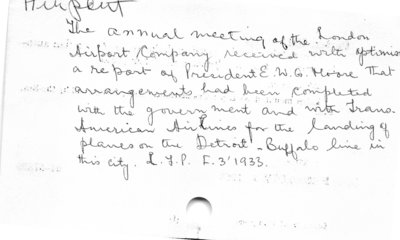 Airport
The annual meeting of the London
Airport Company received with optimism
a report of President E. W. G. Moore that
arrangements had been completed
with the government and with Trans-
American Airlines for the landing of
planes on the Detroit-Buffalo line in
this city. L.F.P. F.3'1933.